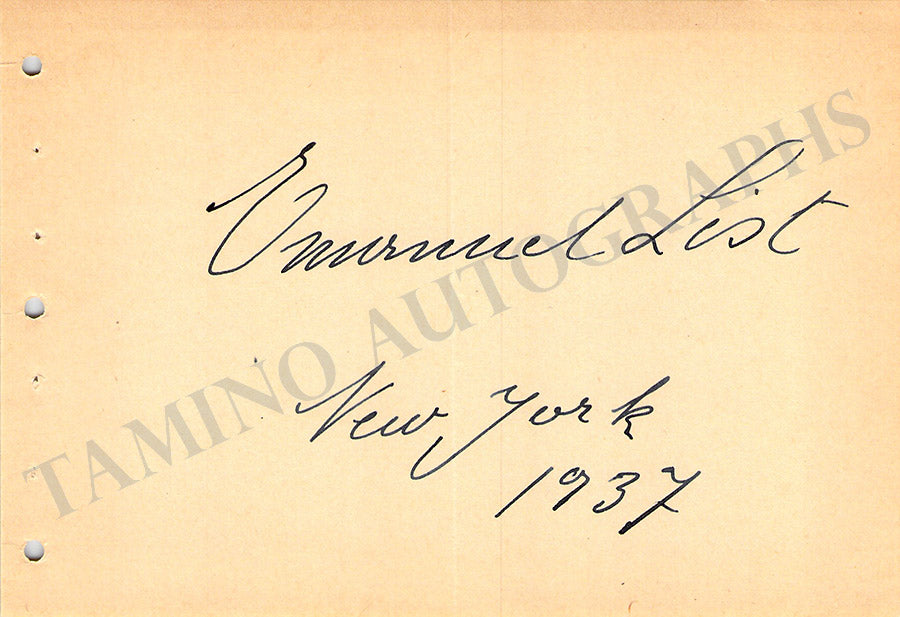 Emanuel List
TAMINO AUTOGRAPHS
New York
1937